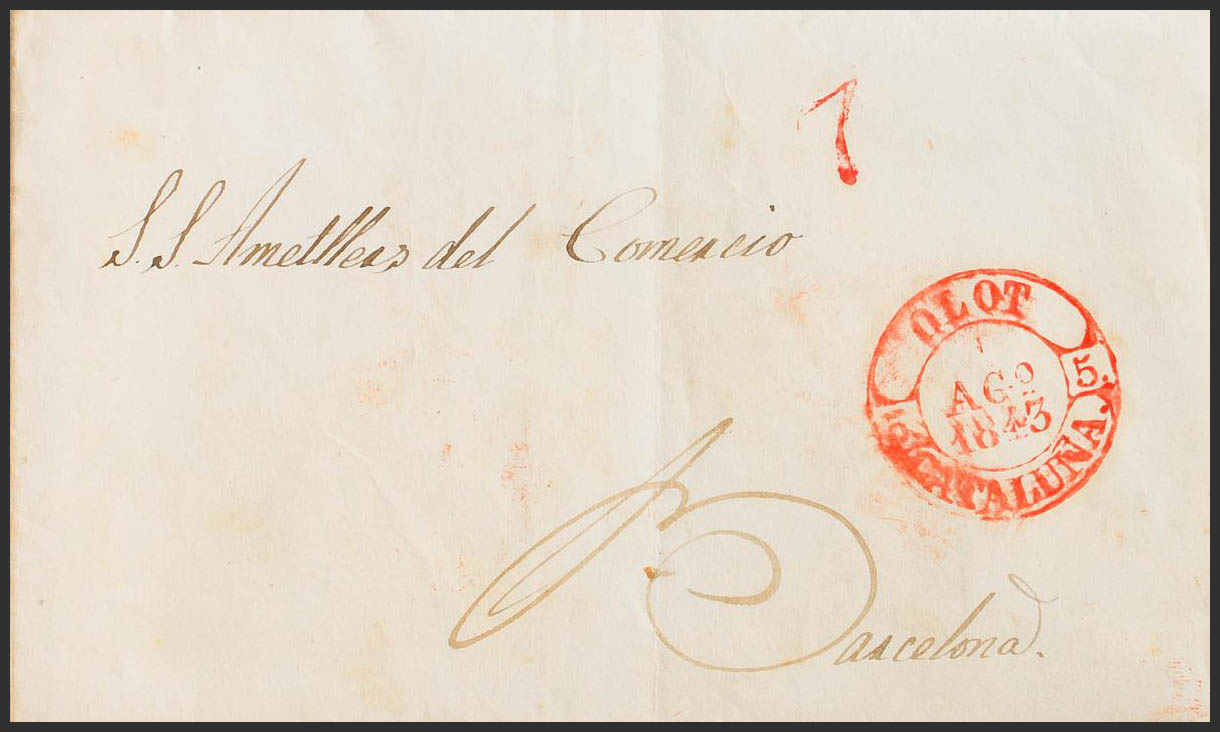 7
S. S. Ametllers del Comercio
OLOT
5.
AGo
1843
CATALUÑA.
Barcelona.